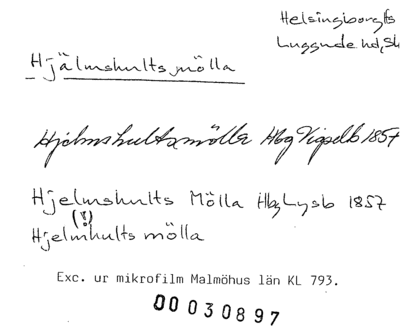 Helsingborg lfs
Luggude hd, Sk
Hjälmshultsmölla
Hjelmshultsmölla Hbg Vigselb 1857
Hjelmshults Mölla Hbg Lysb 1857
(!)
Hjelmhults mölla
Exc. ur mikrofilm Malmöhus län KL 793.
00 030897